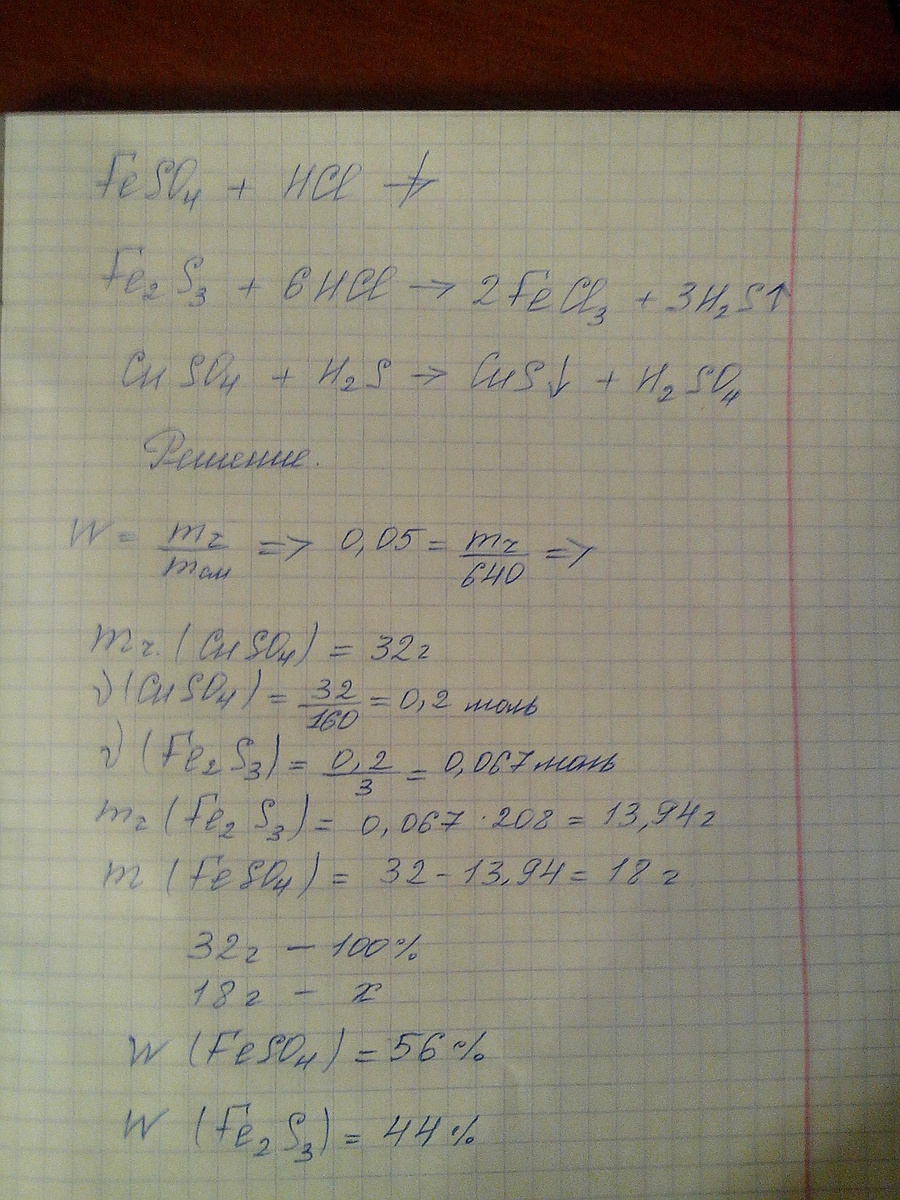 FeSO₄ + HCl ↛
Fe₂S₃ + 6HCl → 2FeCl₃ + 3H₂S↑
CuSO₄ + H₂S → CuS↓ + H₂SO₄
Решение.
W = mг/mсм => 0,05 = mг/640 =>
mг. (CuSO₄) = 32г
ν(CuSO₄) = 32/160 = 0,2 моль
ν(Fe₂S₃) = 0,2/3 = 0,067 моль
mг (Fe₂S₃) = 0,067 · 208 = 13,94г
m (FeSO₄) = 32 - 13,94 = 18 г
32г — 100%
18г — x
W (FeSO₄) = 56%
W (Fe₂S₃) = 44%